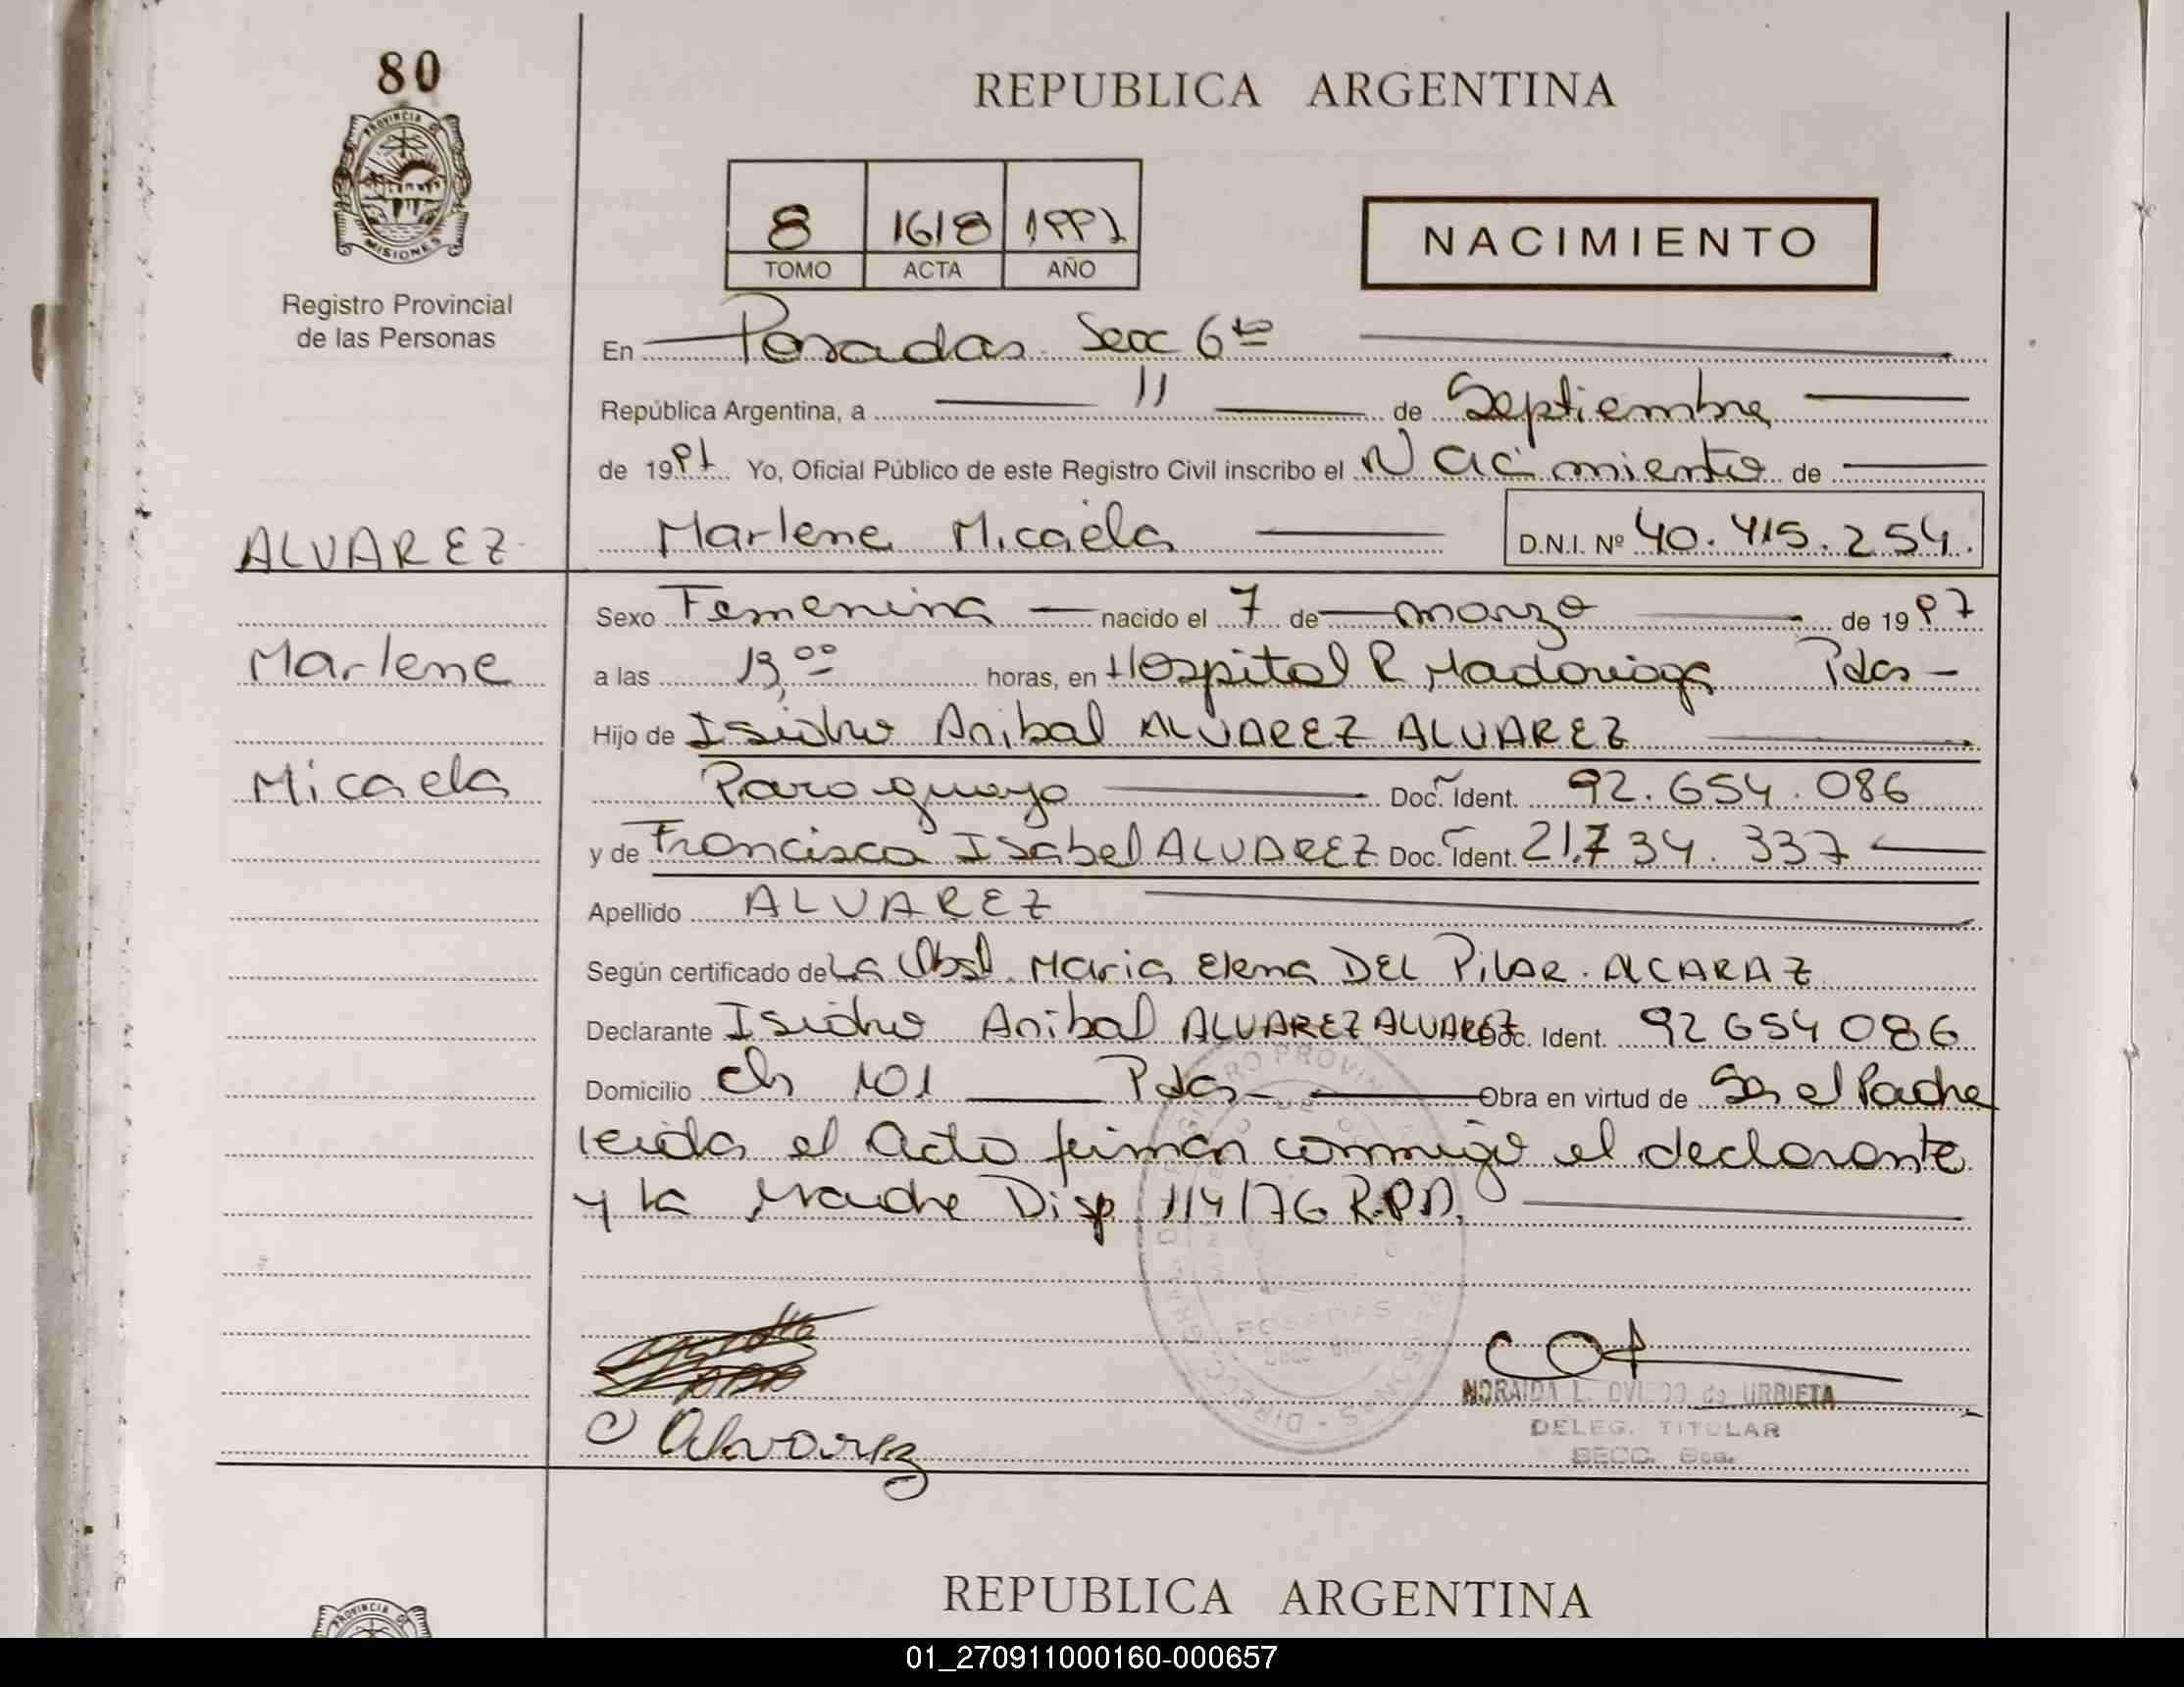 80
REPUBLICA ARGENTINA
PROVINCIA DE
MISIONES
Registro Provincial
de las Personas
8 1618 1997
TOMO ACTA AÑO
NACIMIENTO
En Posadas Secc 6ta
República Argentina, a 11 de Septiembre
de 1997 Yo, Oficial Público de este Registro Civil inscribo el Nacimiento de
ALVAREZ
Marlene Micaela D.N.I. Nº 40.415.254.
Sexo Femenina nacido el 7 de marzo de 1997
Marlene
a las 13,00 horas, en Hospital R Madariaga Pdas
Hijo de Isidro Anibal ALVAREZ ALVAREZ
Micaela
Paraguayo Doc. Ident. 92.654.086
y de Francisca Isabel ALVAREZ Doc. Ident. 21.734.337
Apellido ALVAREZ
Según certificado de La Obst. Maria Elena DEL PILAR ALCARAZ
Declarante Isidro Anibal ALVAREZ ALVAREZ Doc. Ident. 92654086
Domicilio ch 101 Pdas Obra en virtud de Ser el Padre
leida el Acta firman conmigo el declarante
y la Madre Disp 114/76 R.P.P.
POSADAS
Alvarez
NORAIDA L. OVIEDO de URBIETA
DELEG. TITULAR
SECC. 6ta.
REPUBLICA ARGENTINA
PROVINCIA DE
01_270911000160-000657